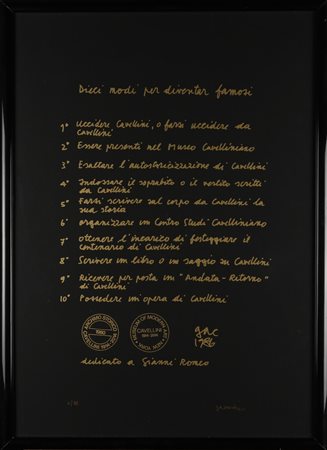 Dieci modi per diventar famosi
1° Uccidere Cavellini, o farsi uccidere da
Cavellini
2° Essere presenti nel Museo Cavelliniano
3° Esaltare l'autostoricizzazione di Cavellini
4° Indossare il soprabito o il vestito scritti
da Cavellini
5° Farsi scrivere sul corpo da Cavellini la
sua storia
6° organizzare un Centro Studi Cavelliniano
7° ottenere l'incarico di festeggiare il
centenario di Cavellini
8° Scrivere un libro o un saggio su Cavellini
9° Ricevere per posta un "Andata-Ritorno"
di Cavellini
10° Possedere un'opera di Cavellini
CAVELLINI
1914-2014
gac
1986
dedicato a Gianni Romeo